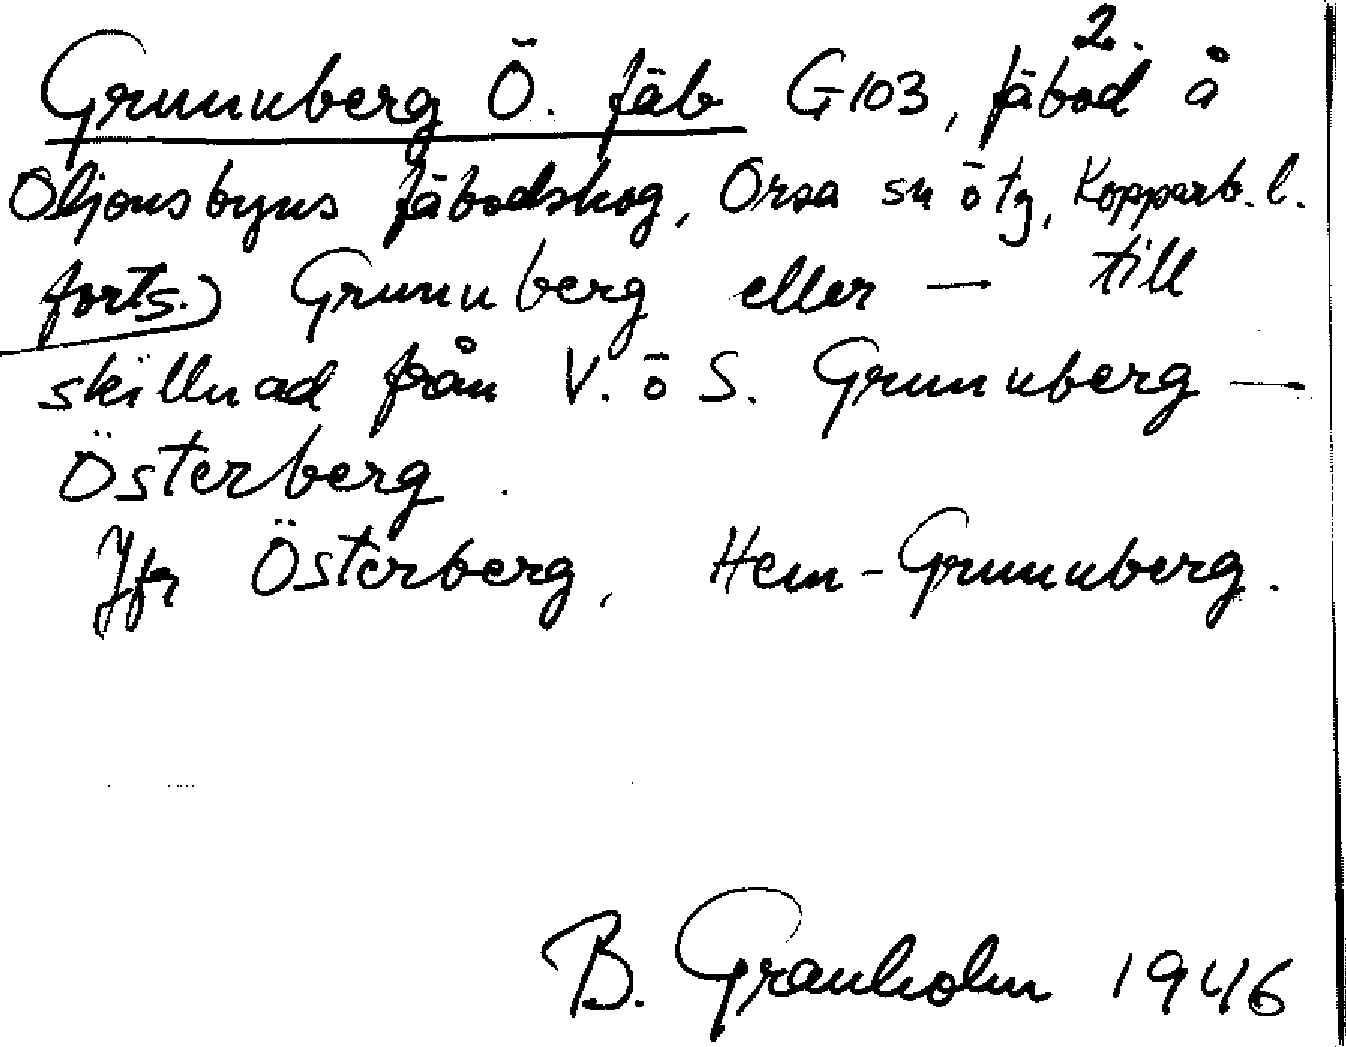 2.
Grunuberg Ö. fäb G103, fäbod å
Oljonsbyns fäbodskog, Orsa sn ö tg, Kopparb. l.
forts.) Grunuberg eller — till
skillnad från V. ö S. Grunuberg —
Österberg.
Jfr Österberg, Hem-Grunuberg.
B. Granholm 1946